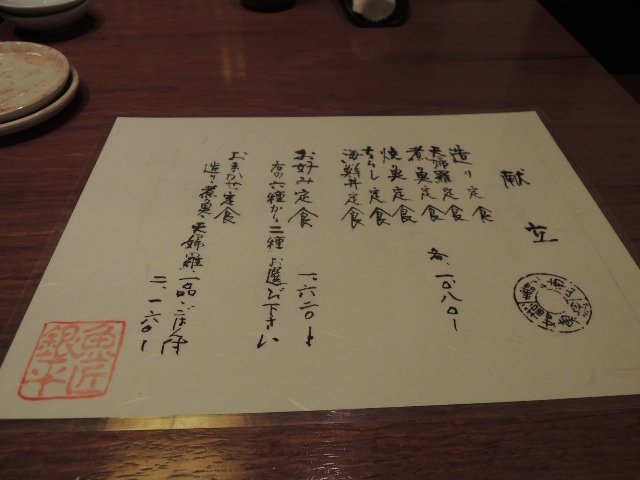 献立
造り定食
天婦羅定食
煮魚定食
焼魚定食
ちらし定食
海鮮丼定食
各一、〇八〇ー
お好み定食 一、六二〇ー
右の六種から二種お選び下さい
おまかせ定食
造り 煮魚 天婦羅 一品 ごはん付
二、一六〇ー
魚匠
銀平